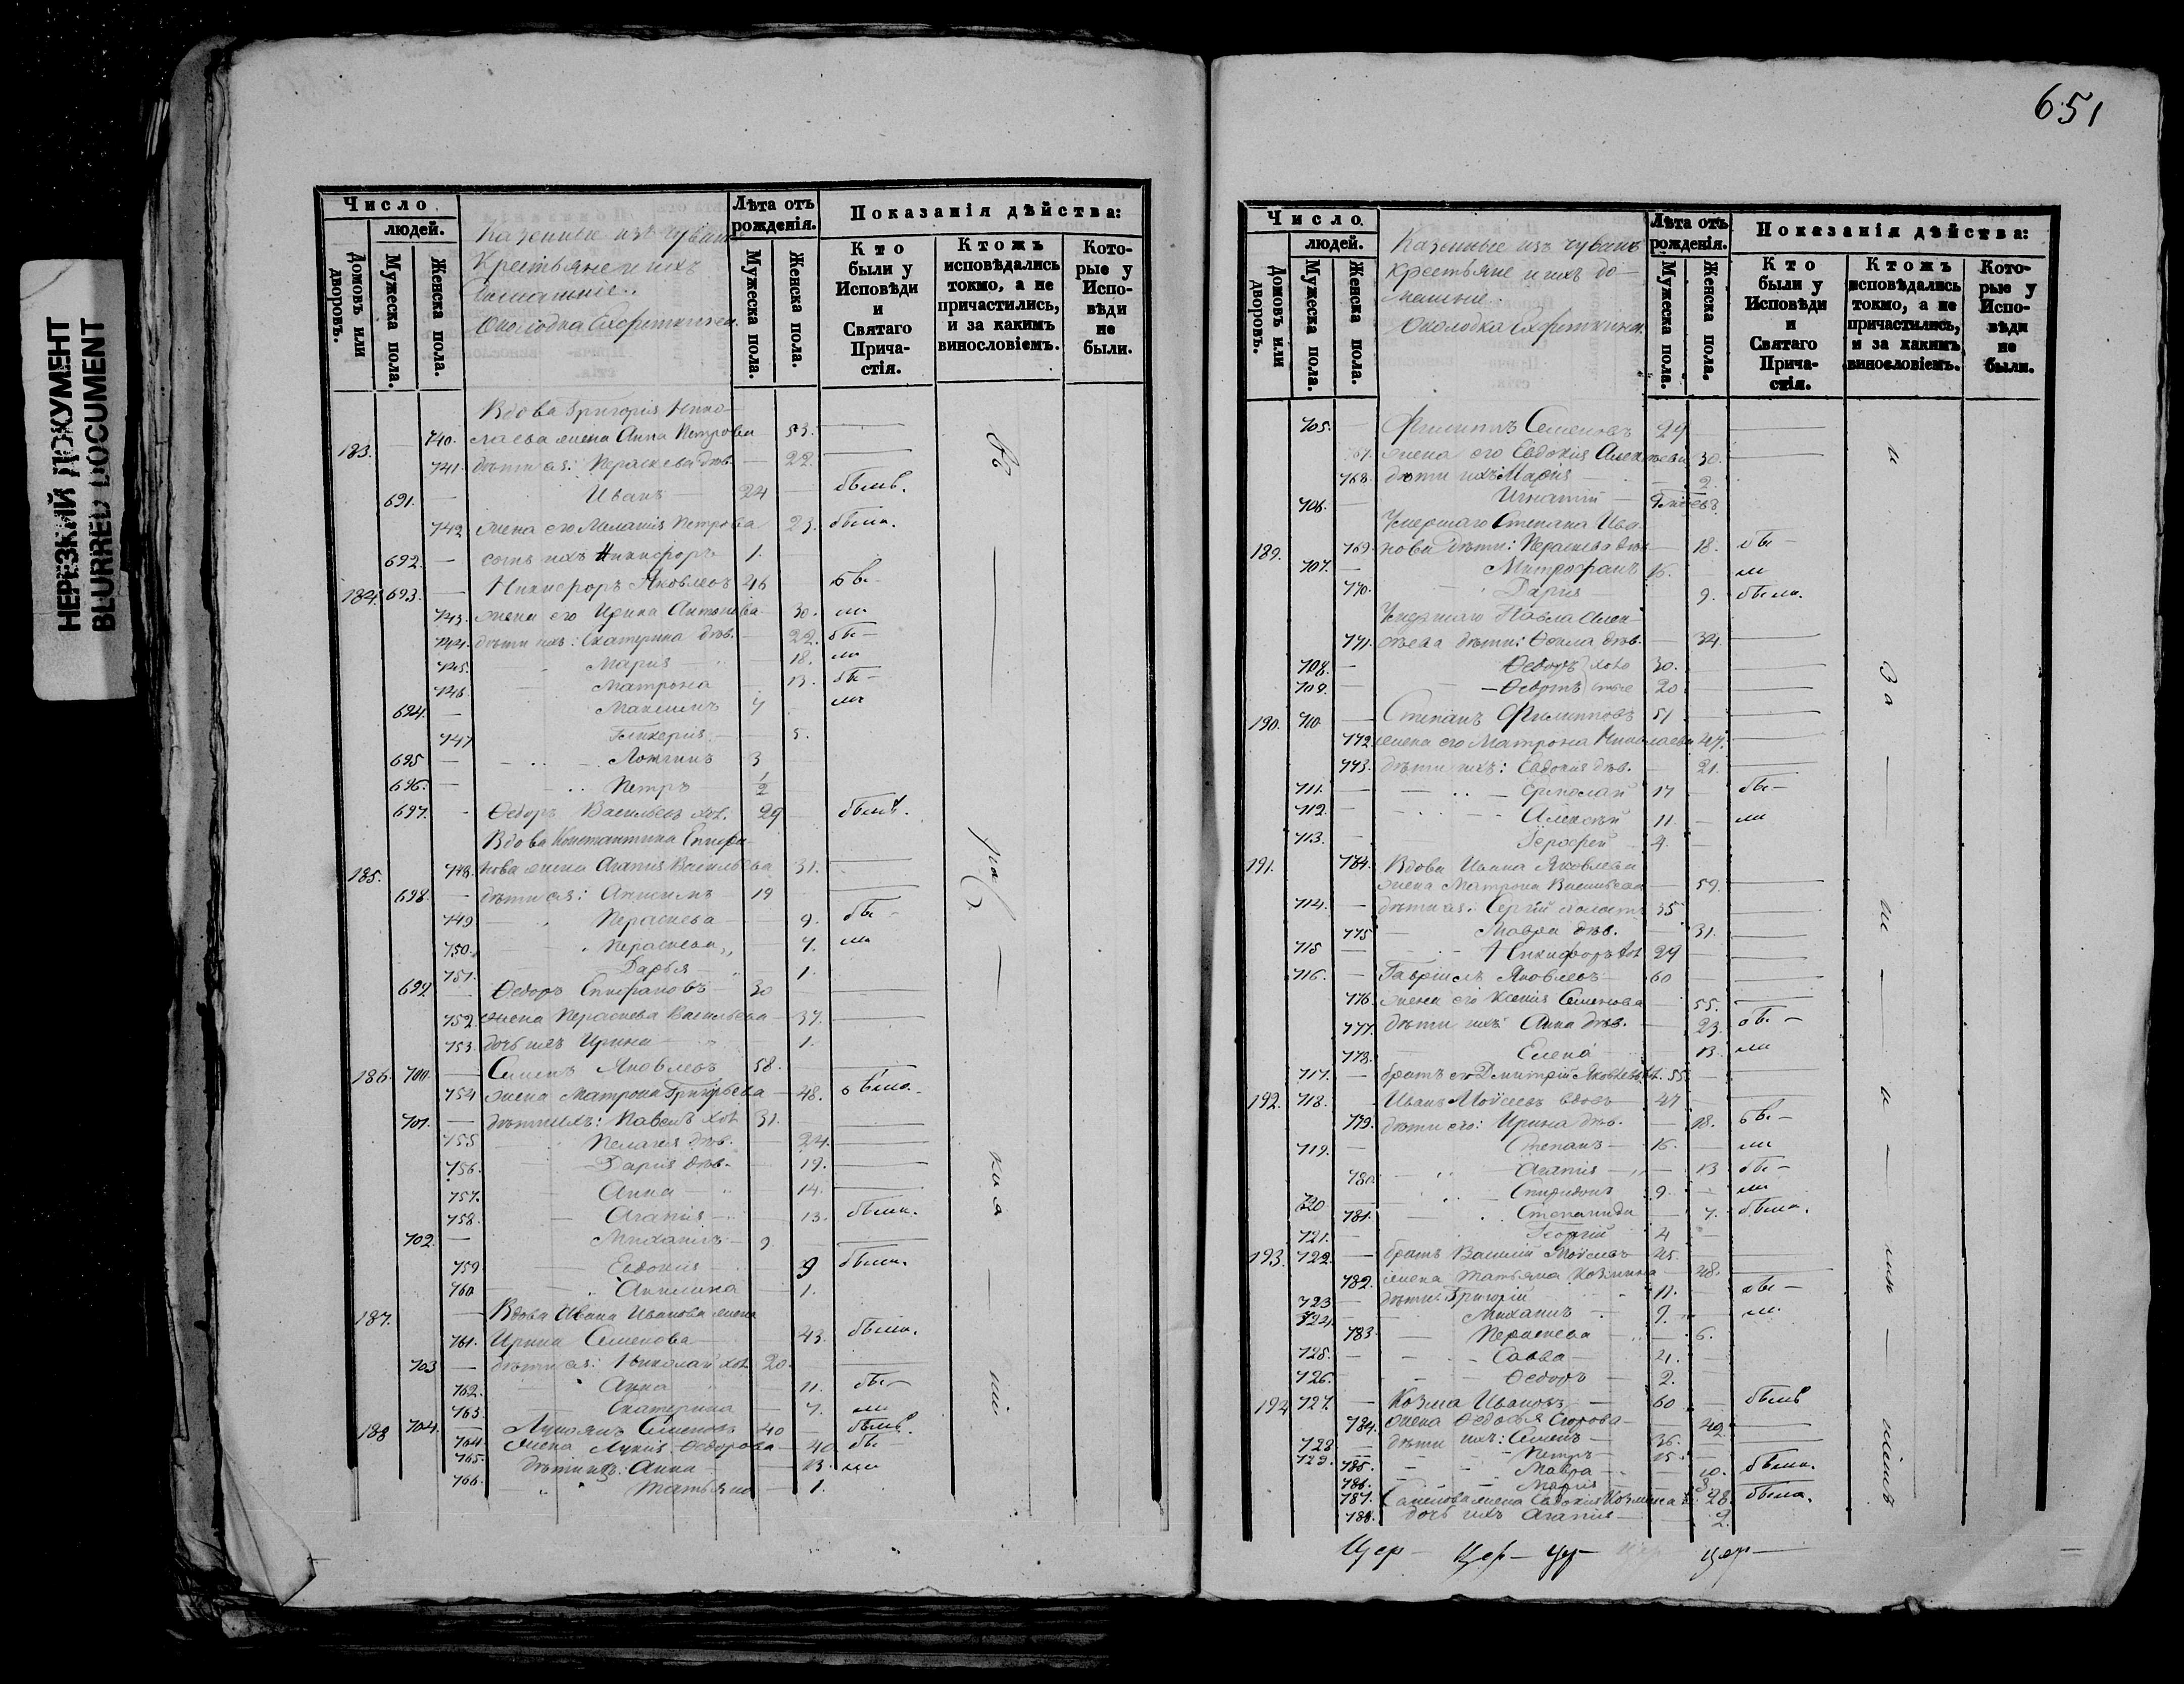 НЕРЕЗКИЙ ДОКУМЕНТ
BLURRED DOCUMENT
Число
людей.
Домовъ или дворовъ.
Мужеска пола.
Женска пола.
Казенные изъ чувашъ
Крестьяне и ихъ
домашніе.
Околодка
Лѣта отъ рожденія.
Мужеска пола.
Женска пола.
Показанія дѣйства:
Кто были у Исповѣди и Святаго Причастія.
Ктожъ исповѣдались токмо, а не причастились, и за какимъ винословіемъ.
Которые у Исповѣди не были.
Вдова Григорія Нико-
183. 740. лаева жена Анна Петрова 53.
741. дѣти ея: Параскева дѣв. 22.
691. Иванъ 24 бывъ.
742 жена его Меланія Петрова 23. была.
692. сынъ ихъ Никифоръ 1.
184. 693. Никифоръ Яковлевъ 46 бы-
743. жена его Ирина Антонова 30. ли
744. дѣти ихъ: Екатерина дѣв. 22. бы-
745. Марія 18. ли
746 Матрона 13. бы-
694. Максимъ 7 ли
747 Гликерія 5.
695 Логгинъ 3
696. Петръ 1/2
697. Ѳедоръ Васильевъ хол. 29
Вдова Константина Епифа-
185. 748. нова жена Агапія Васильева 31.
698. дѣти ея: Анисимъ 19
749 Параскева 9. бы-
750. Параскева 7. ли
751. Дарья 1.
699. Ѳедоръ Епифановъ 30
752. жена Параскева Васильева 37.
753. дочь ихъ Ирина 1.
186. 700. Семенъ Яковлевъ 58.
754 жена Матрона Григорьева 48. была.
701. дѣти ихъ: Павелъ хол 31.
755 Пелагія дѣв. 24.
756. Дарія дѣв. 19.
757. Анна 14.
758. Агапія 13. были.
702. Михаилъ 9
759. Евдокія 9 была.
760 Акилина 1.
187. Вдова Ивана Иванова жена
761. Ирина Семенова 43. была.
703 дѣти ея: Николай хол 20.
762. Анна 11. бы-
763. Екатерина 7. ли
188 704. Лукоянъ Семеновъ 40
764. жена Лукія Ѳедорова 40. бы-
765. дѣти ихъ: Анна 13. ли
766. Татьяна 1.
651
Число
людей.
Домовъ или дворовъ.
Мужеска пола.
Женска пола.
Казенные изъ чувашъ
крестьяне и ихъ до-
машніе.
Околодка
Лѣта отъ рожденія.
Мужеска пола.
Женска пола.
Показанія дѣйства:
Кто были у Исповѣди и Святаго Причастія.
Ктожъ исповѣдались токмо, а не причастились, и за какимъ винословіемъ.
Которые у Исповѣди не были.
705. Филиппъ Семеновъ 29
767. жена его Евдокія Алексѣева 30.
768. дѣти ихъ Марія 2.
706. Игнатій
Умершаго Степана Ива-
189. 769. нова дѣти: Параскева дѣв. 18. бы-
707. Митрофанъ 16. ли
770. Дарія 9. была.
Умершаго Павла Алек-
771. сѣева дѣти: Ѳекла дѣв. 34.
708. Ѳедоръ холо 30.
709. стые 20
190. 710 Степанъ Филипповъ 51
772. жена его Матрона Николаева 47.
773. дѣти ихъ: Евдокія дѣв. 21.
711. 17 бы-
712. Алексѣй 11. ли
713. 4.
191. 784. Вдова Ивана Яковлева
жена Матрона Васильева 59.
714. дѣти ея: Сергій холост 35
775 Мавра дѣв. 31.
715 Никифоръ хол 29
716. Гавріилъ Яковлевъ 60
776. жена его Ксенія Семенова 55.
777. дѣти ихъ Анна дѣв. 23. бы-
778. Елена 13. ли
717. братъ его Дмитрій Яковлевъ 55
192. 718. Иванъ Моисеевъ вдовъ 47
779. дѣти его: Ирина дѣв. 18. бы-
719. Степанъ 16. ли
780. Агапія 13 бы-
720 Спиридонъ 9. ли
781. Степанида 7. была.
721. Георгій 4
193. 722. братъ Василій Моисеевъ 45.
782. жена Татьяна Козмина 48.
723 дѣти: Григорій 11. бы-
724. Михаилъ 9. ли
783. Параскева 6.
725. Савва 4.
726. Ѳедоръ 2.
194 727. Козма Ивановъ 60
784. жена Ѳедосья Егорова
728 дѣти ихъ: Семенъ 36.
729. Петръ 15.
785. Мавра 10. была.
786. Марія
787. Семенова жена Евдокія Козмина 28. была.
788. дочь ихъ Агапія 2.